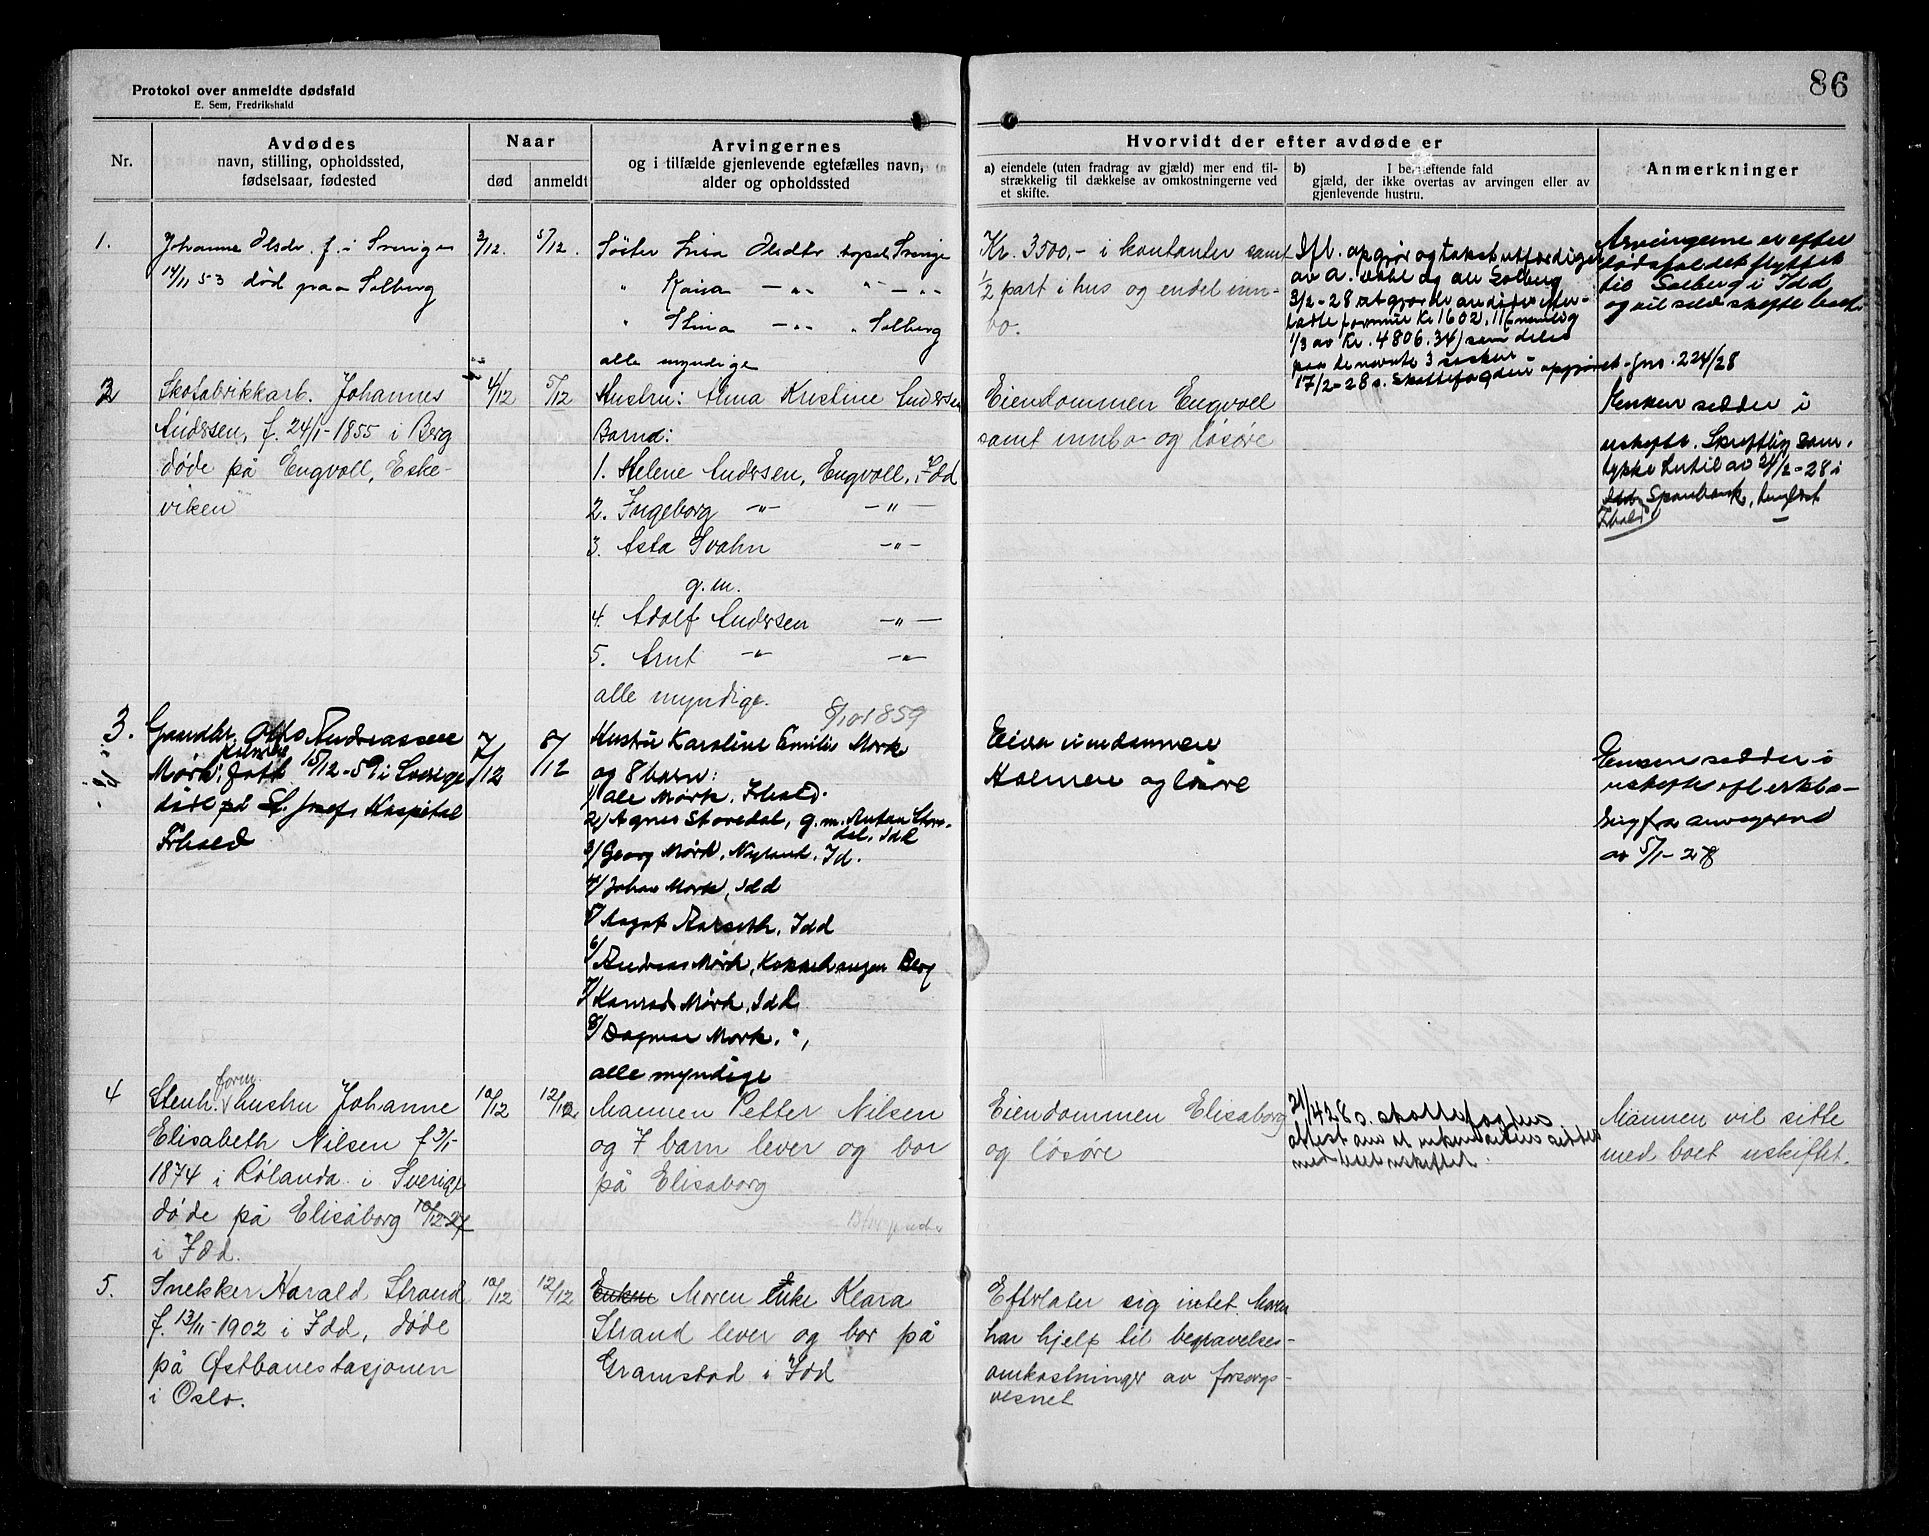 86
Protokol over anmeldte dødsfald
E. Sem, Fredrikshald
Nr.
Avdødes
navn, stilling, opholdssted,
fødselsaar, fødested
Naar
død
anmeldt
Arvingernes
og i tilfælde gjenlevende egtefælles navn,
alder og opholdssted
Hvorvidt der efter avdøde er
a) eiendele (uten fradrag av gjæld) mer end til-
strækkelig til dækkelse av omkostningerne ved
et skifte.
b) I bekræftende fald
gjæld, der ikke overtas av arvingen eller av
gjenlevende hustru.
Anmerkninger
1.
Johanne Olsdr. f. i Sverige
14/11 53 død paa Solberg
3/12.
5/12.
Søster Lina Olsdtr Sverige
" Kaisa — " — " — " —
" Stina — " — " Solberg
alle myndige
Kr. 3500,- i kontanter samt
1/2 part i hus og endel inn-
bo.
Ifl. opgjør og takst utfærdiget
av A. og Solberg
3/2-28 utgjorde avdødes efter-
latte formue Kr 1602,11 (nemlig
1/3 av Kr. 4806.34) som deles
paa de nævnte 3 søsken
17/2-28 s. Skattefogden opgjøret. Jnr. 224/28
Arvingerne er efter
dødsfaldet flyttet
til Solberg i Idd
og vil selv skifte boet.
2
Skofabrikkarb. Johannes
Andersen, f. 24/1-1855 i Berg
døde på Engvoll, Eske-
viken
4/12
5/12
Hustru: Anna Kristine Andersen
Barna:
1. Helene Andersen, Engvoll, Idd
2. Ingeborg —"— —"—
3. Asta Svahn —"—
g.m.
4. Adolf Andersen —"—
5. Arnt —"— —"—
alle myndige.
Eiendommen Engvoll
samt innbo og løsøre
Enken sidder i
uskifte. Skriftlig sam-
tykke hertil av 24/2-28 i
Idd Sparebank,
Fhald
3.
Gaardbr. Otto Andreassen
Mørk, Holmen født 15/12-59 i Sverige
døde på St. Josefs Hospital
Frhald
7/12
8/12
8/10 1859
Hustru Karoline Emilie Mørk
og 8 barn:
1/ Ole Mørk, Frhald.
2/ Agnes Storedal, g.m. Anton Store-
dal, Idd
3/ Georg Mørk, Id.
4/ Johan Mørk, Idd
5/ Aagot Aarseth, Idd
6/ Andreas Mørk, Berg
7/ Konrad Mørk, Idd
8/ Dagmar Mørk, ",
alle myndige
Eier eiendommen
Holmen og løsøre
Enken sidder i
uskifte efl. erklæ-
ring fra arvingerne
av 5/1-28
4
Stenh. form. hustru Johanne
Elisabeth Nilsen f 3/1-
1874 i Rølanda i Sverige
døde på Elisaborg 10/12-27
i Idd.
10/12
12/12
Mannen Petter Nilsen
og 7 barn lever og bor
på Elisaborg
Eiendommen Elisaborg
og løsøre
21/4 28 s. skattefogdens
attest om at enkemannen sitter
med boet uskiftet.
Mannen vil sitte
med boet uskiftet.
5.
Snekker Harald Strand
f. 13/11-1902 i Idd, døde
på Østbanestasjonen
i Oslo.
10/12
12/12
Enken Moren Enke Klara
Strand lever og bor på
Gramstad i Idd
Efterlater sig intet. Moren
har hjelp til begravelses-
omkostninger av forsorgs-
vesnet